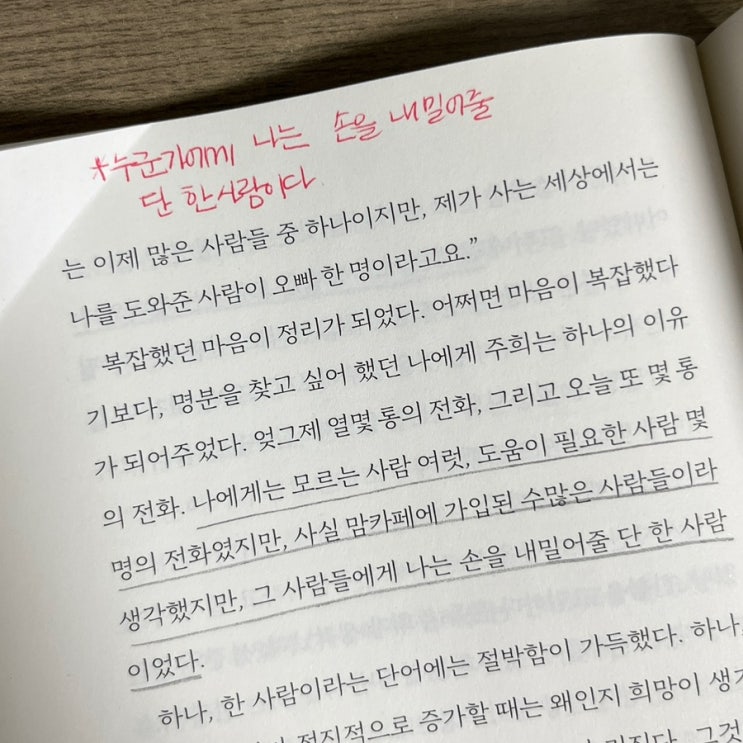 *누군가에게 나는 손을 내밀어줄
단 한 사람이다.
는 이제 많은 사람들 중 하나이지만, 제가 사는 세상에서는
나를 도와준 사람이 오빠 한 명이라고요.”
복잡했던 마음이 정리가 되었다. 어쩌면 마음이 복잡했다
기보다, 명분을 찾고 싶어 했던 나에게 주희는 하나의 이유
가 되어주었다. 엊그제 열몇 통의 전화, 그리고 오늘 또 몇 통
의 전화. 나에게는 모르는 사람 여럿, 도움이 필요한 사람 몇
명의 전화였지만, 사실 맘카페에 가입된 수많은 사람들이라
생각했지만, 그 사람들에게 나는 손을 내밀어줄 단 한 사람
이었다.
하나, 한 사람이라는 단어에는 절박함이 가득했다. 하나,
점진적으로 증가할 때는 왜인지 희망이 생기
그것